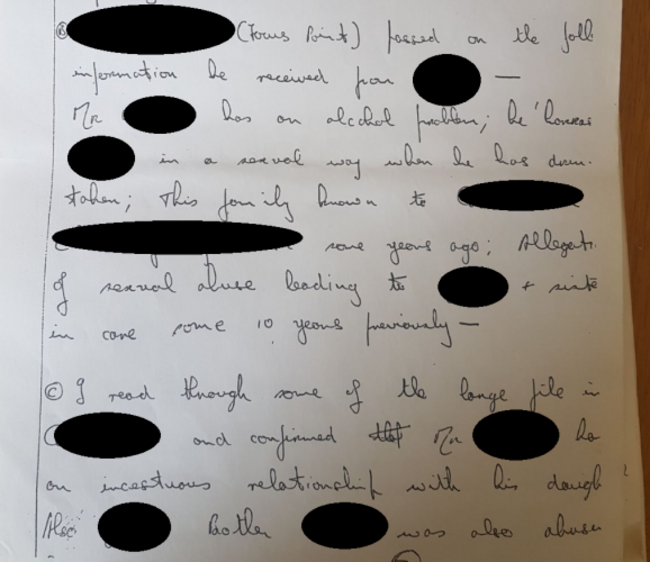 (B) (Focus Point) passed on the foll
information he received from —
Mr has an alcohol problem; he 'harras
in a sexual way when he has drun
taken; This family known to
some years ago; Allegati
of sexual abuse leading to + siste
in care some 10 years previously —
(C) I read through some of the large file in
and confirmed that Mr ha
an incestuous relationship with his daugh
Also Brother was also abuse